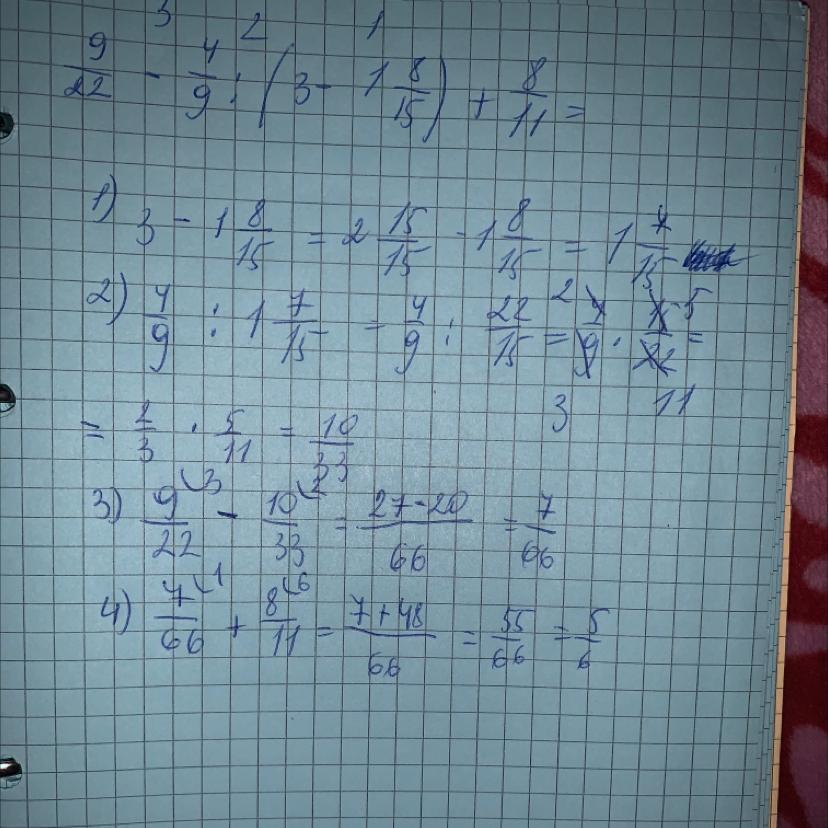 3 2 1
9/22 - 4/9 : (3 - 1 8/15) + 8/11 =
1) 3 - 1 8/15 = 2 15/15 - 1 8/15 = 1 7/15
2) 4/9 : 1 7/15 = 4/9 : 22/15 = 2 4/9 · 15/22 5 =
3 11
= 2/3 · 5/11 = 10/33
3) 9/22 (3 - 10/33 (2 = 27-20/66 = 7/66
4) 7/66 (1 + 8/11 (6 = 7+48/66 = 55/66 = 5/6